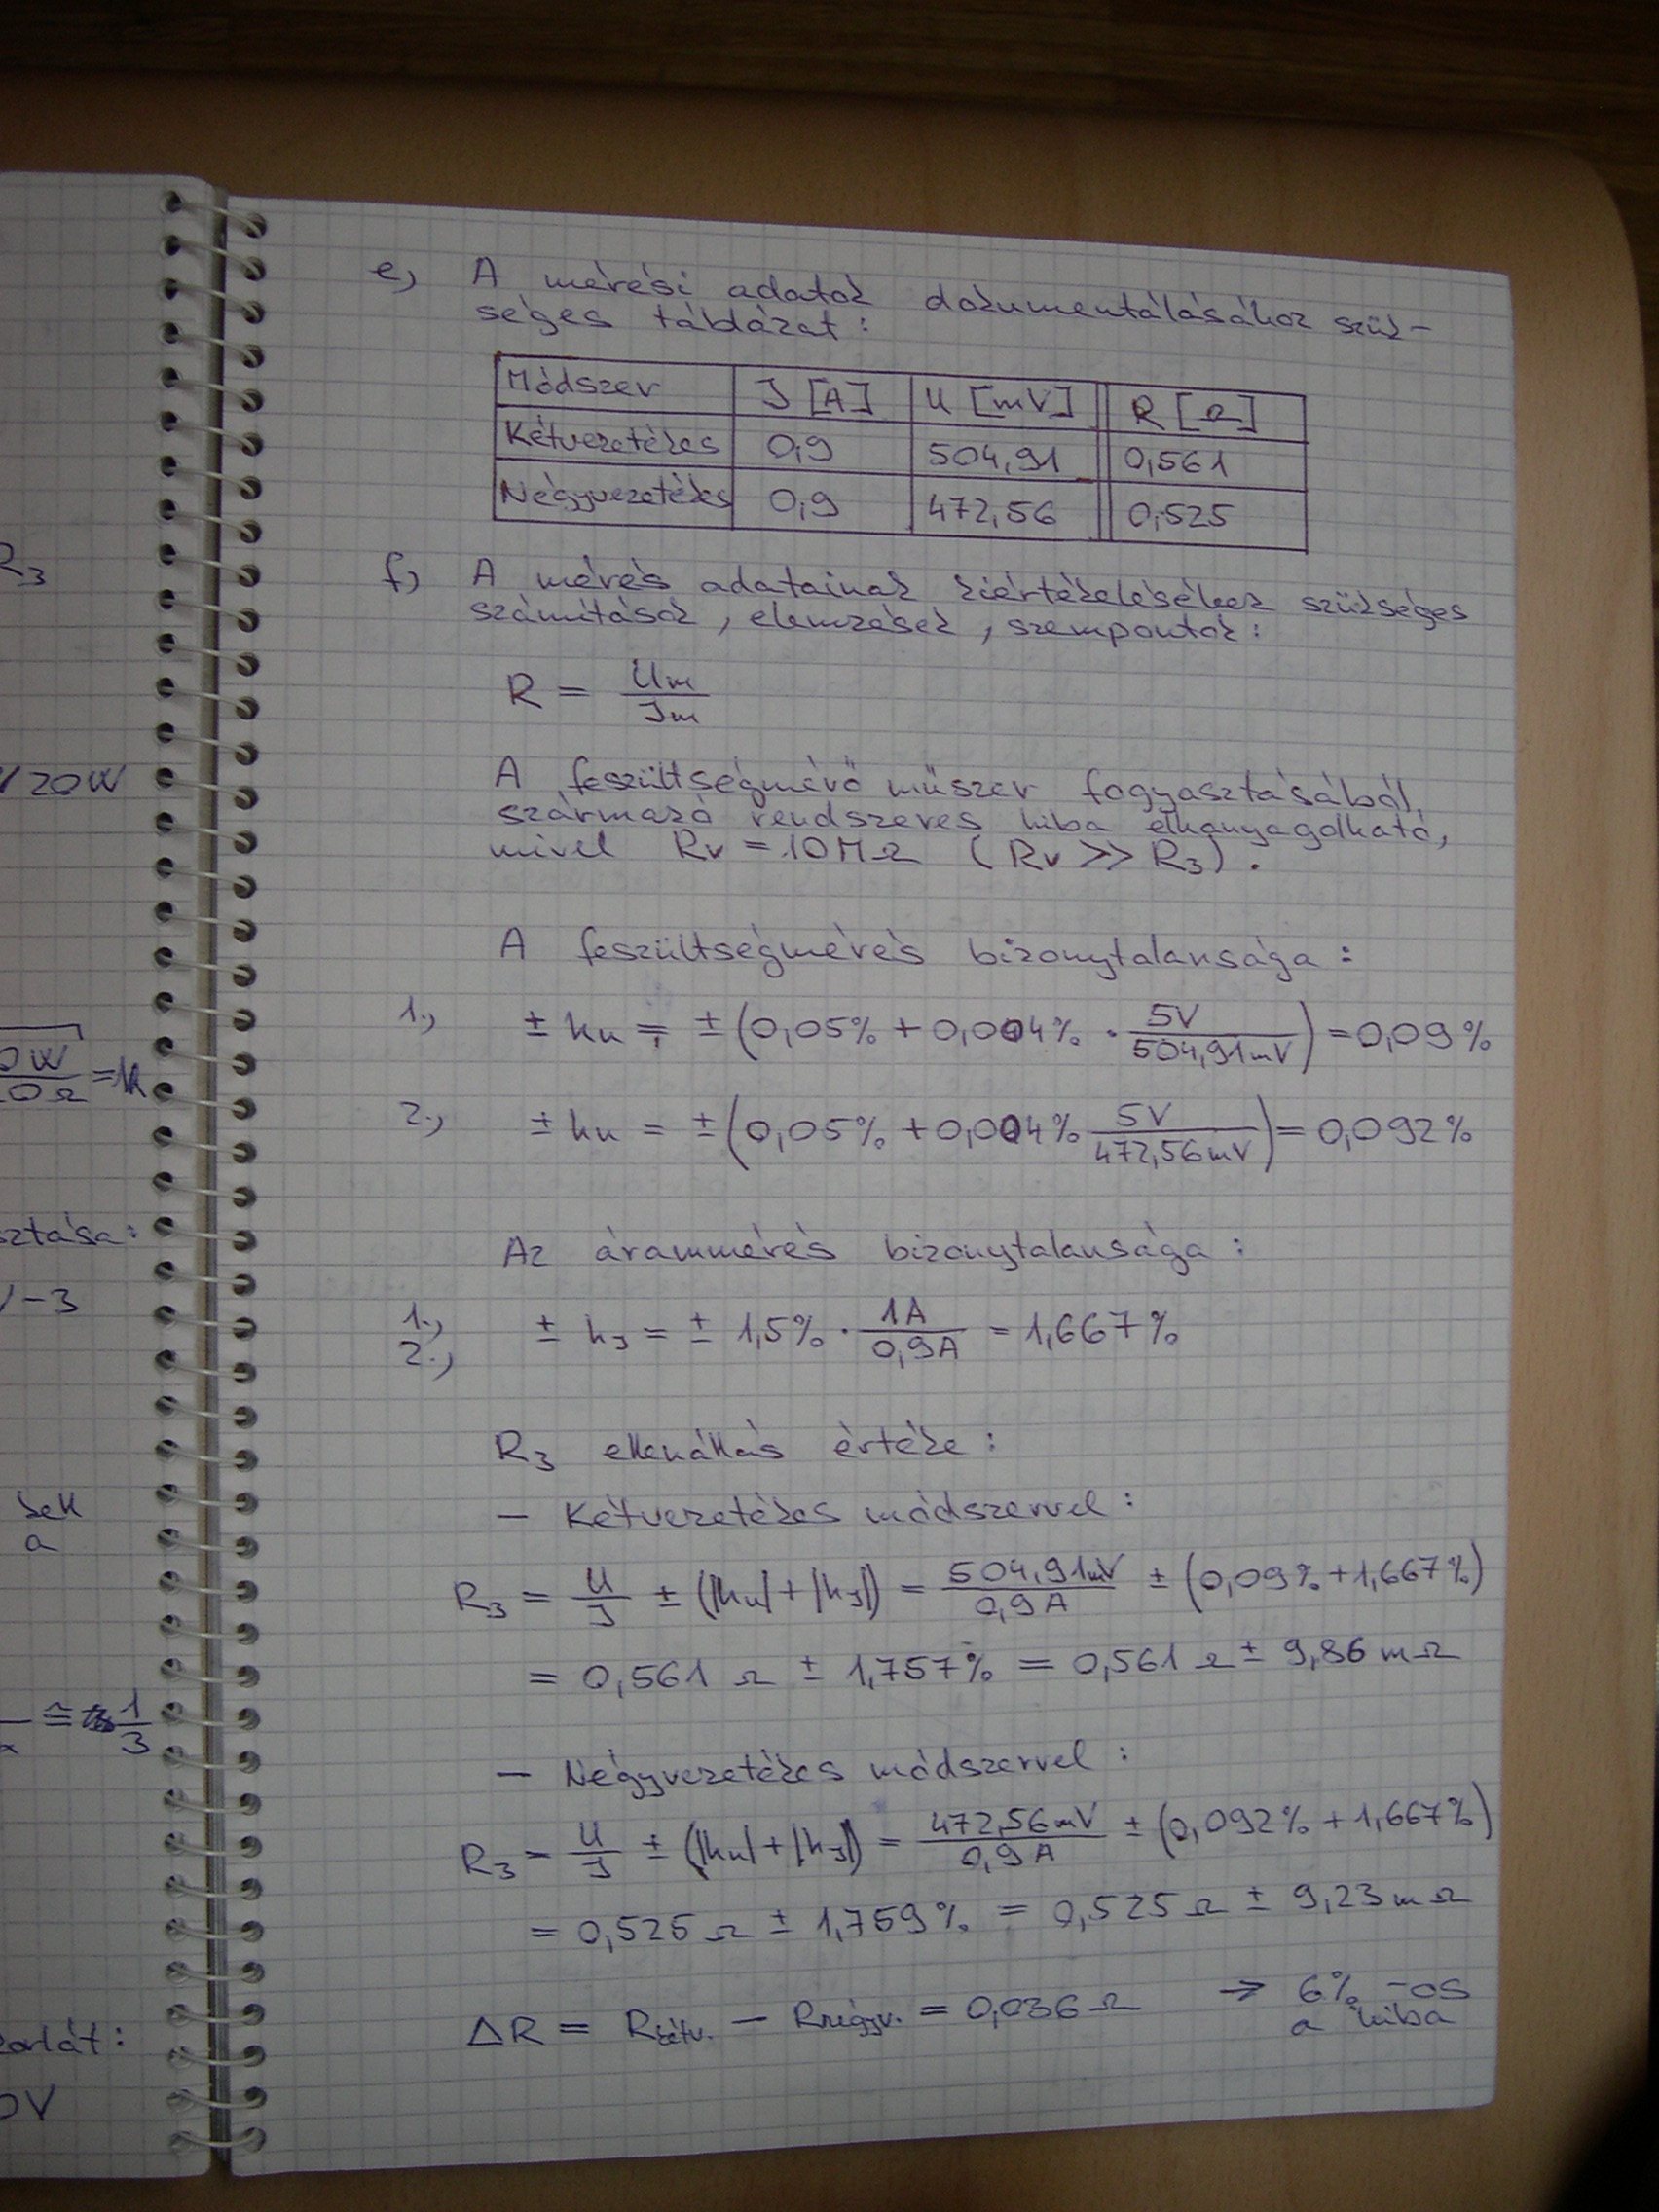 e, A mérési adatok dokumentálásához szük-
séges táblázat:
Módszer J [A] U [mV] R [Ω]
Kétvezetékes 0,9 504,91 0,561
Négyvezetékes 0,9 472,56 0,525
f, A mérés adatainak kiértékeléséhez szükséges
számítások, elemzések, szempontok:
R = Um / Jm
A feszültségmérő műszer fogyasztásából
származó rendszeres hiba elhanyagolható,
mivel Rv = 10MΩ (Rv >> R3).
A feszültségmérés bizonytalansága:
1., ± hu = ± (0,05% + 0,004% · 5V / 504,91mV) = 0,09%
2., ± hu = ± (0,05% + 0,004% 5V / 472,56mV) = 0,092%
Az árammérés bizonytalansága:
1., 2., ± hJ = ± 1,5% · 1A / 0,9A = 1,667%
R3 ellenállás értéke:
– Kétvezetékes módszerrel:
R3 = U / J ± (|hu| + |hJ|) = 504,91mV / 0,9A ± (0,09% + 1,667%)
= 0,561 Ω ± 1,757% = 0,561 Ω ± 9,86 mΩ
– Négyvezetékes módszerrel:
R3 = U / J ± (|hu| + |hJ|) = 472,56mV / 0,9A ± (0,092% + 1,667%)
= 0,525 Ω ± 1,759% = 0,525 Ω ± 9,23 mΩ
ΔR = Rkétv. – Rnégyv. = 0,036 Ω → 6%-os
a hiba
R3
/20W
0W / 0Ω
sztása:
/-3
sek
a
≅ 1/3
korlát:
0V